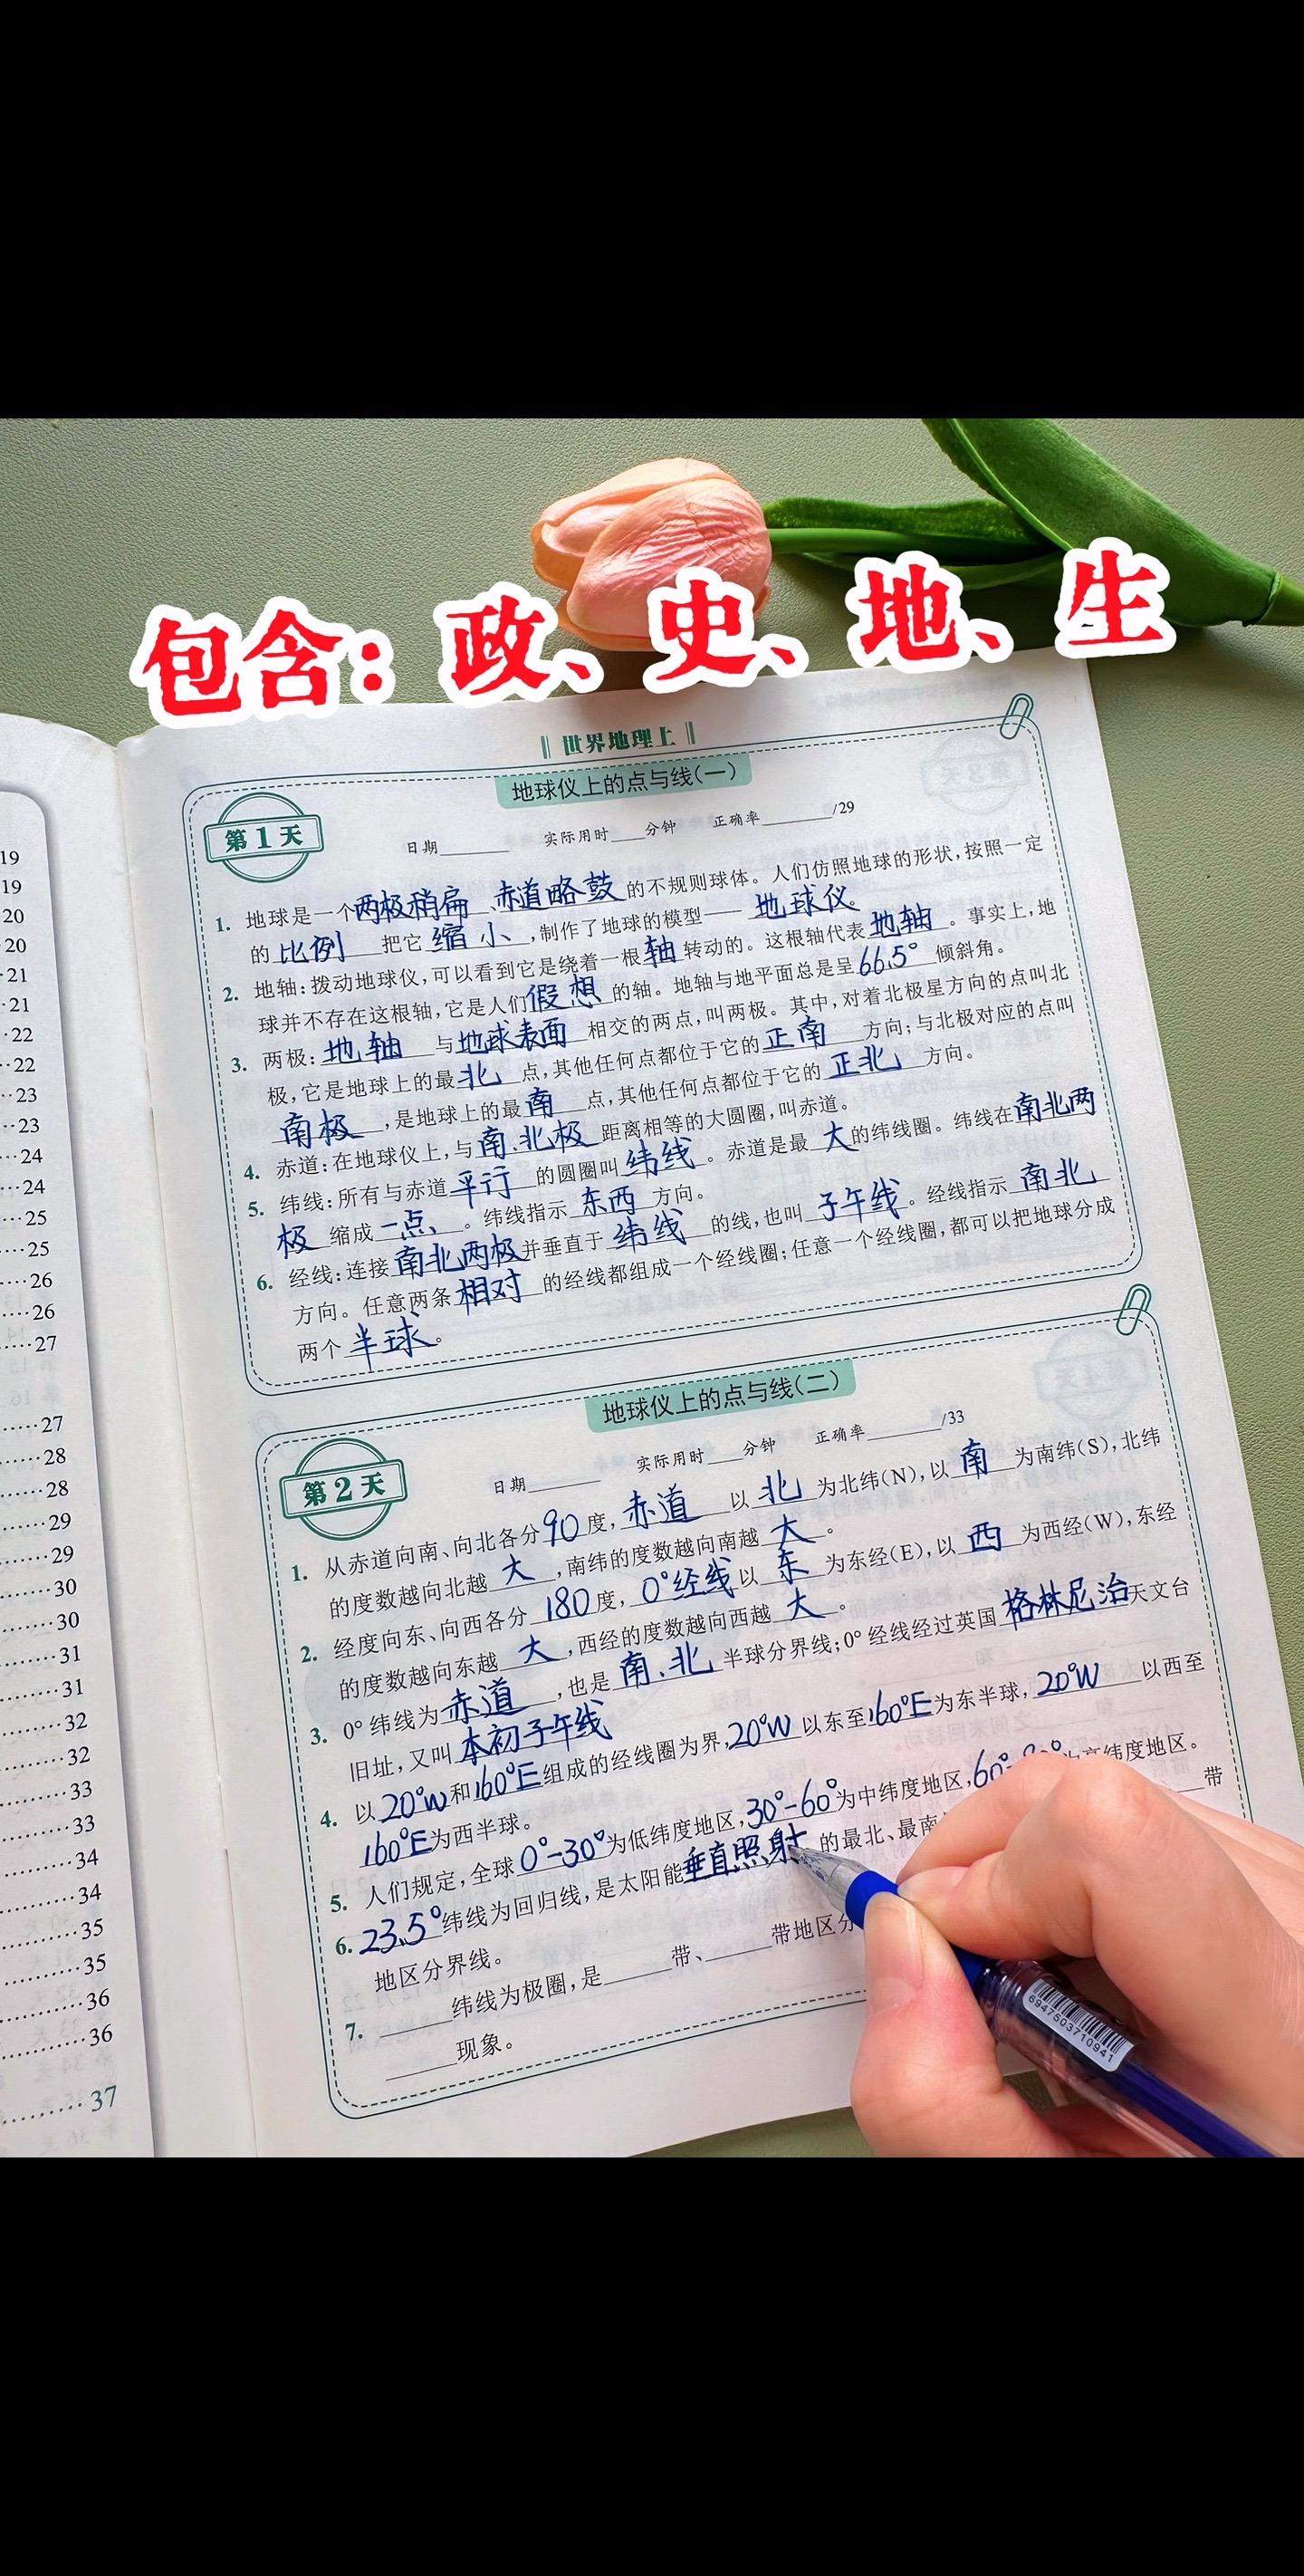 包含：政、史、地、生
世界地理上
地球仪上的点与线(一)
第1天
日期____ 实际用时____分钟 正确率____/29
1. 地球是一个两极稍扁、赤道略鼓的不规则球体。人们仿照地球的形状,按照一定
的比例把它缩小,制作了地球的模型——地球仪。
2. 地轴:拨动地球仪,可以看到它是绕着一根轴转动的。这根轴代表地轴。事实上,地
球并不存在这根轴,它是人们假想的轴。地轴与地平面总是呈66.5°倾斜角。
3. 两极:地轴与地球表面相交的两点,叫两极。其中,对着北极星方向的点叫北
极,它是地球上的最北点,其他任何点都位于它的正南方向;与北极对应的点叫
南极,是地球上的最南点,其他任何点都位于它的正北方向。
4. 赤道:在地球仪上,与南、北极距离相等的大圆圈,叫赤道。
5. 纬线:所有与赤道平行的圆圈叫纬线。赤道是最大的纬线圈。纬线在南北两
极缩成一点。纬线指示东西方向。
6. 经线:连接南北两极并垂直于纬线的线,也叫子午线。经线指示南北
方向。任意两条相对的经线都组成一个经线圈;任意一个经线圈,都可以把地球分成
两个半球。
地球仪上的点与线(二)
第2天
日期____ 实际用时____分钟 正确率____/33
1. 从赤道向南、向北各分90度,赤道以北为北纬(N),以南为南纬(S),北纬
的度数越向北越大,南纬的度数越向南越大。
2. 经度向东、向西各分180度,0°经线以东为东经(E),以西为西经(W),东经
的度数越向东越大,西经的度数越向西越大。
3. 0°纬线为赤道,也是南、北半球分界线;0°经线经过英国格林尼治天文台
旧址,又叫本初子午线
4. 以20°W和160°E组成的经线圈为界,20°W以东至160°E为东半球,20°W以西至
160°E为西半球。
5. 人们规定,全球0°-30°为低纬度地区,30°-60°为中纬度地区,60°-高纬度地区。
6. 23.5°纬线为回归线,是太阳能垂直照射的最北、最南 带
地区分界线。
7. ____纬线为极圈,是____带、____带地区分
____现象。
19
19
20
20
21
21
22
22
23
23
24
24
25
25
26
26
27
27
28
28
29
29
30
30
31
31
32
32
33
33
34
34
35
35
36
36
37
6947503710941